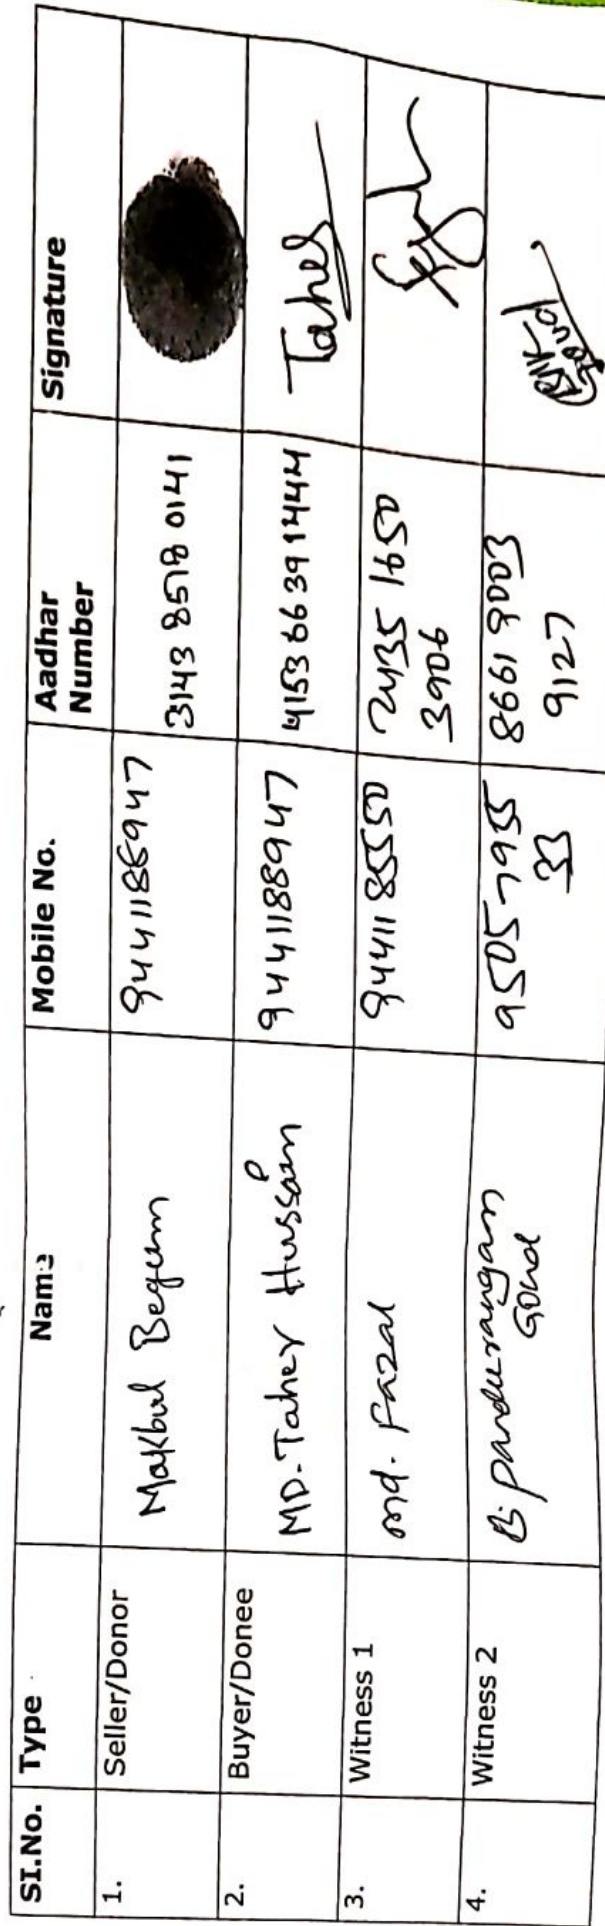 SI.No. Type Name Mobile No. Aadhar Number Signature
1. Seller/Donor Makbul Begum 9441188947 3143 8578 0141
2. Buyer/Donee MD. Taher Hussain 9441188947 4153 6639 1444 Taher
3. Witness 1 md. Fazal 9441185550 2435 1650
3906
4. Witness 2 B. pandurangam 95057955 8661 9003
Goud 33 9127 Goud